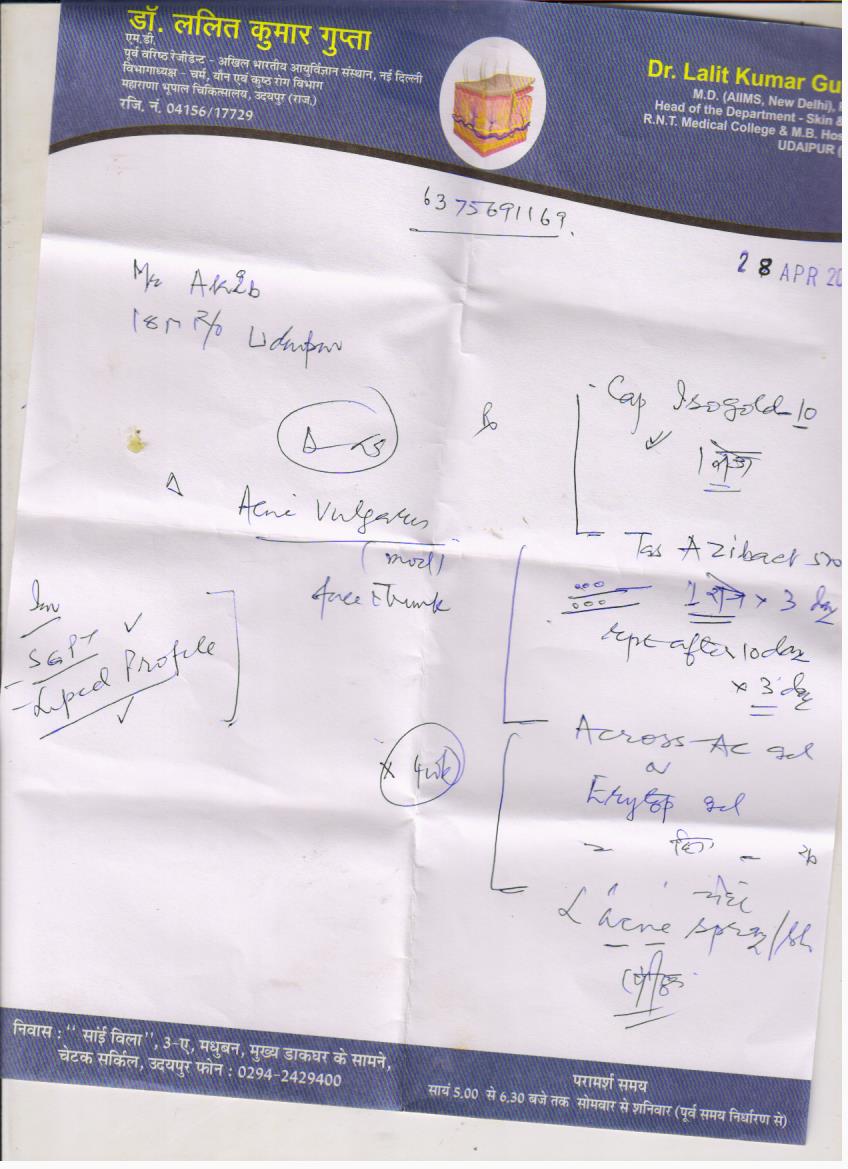 डॉ. ललित कुमार गुप्ता
एम.डी.
पूर्व वरिष्ठ रेजीडेन्ट - अखिल भारतीय आयुर्विज्ञान संस्थान, नई दिल्ली
विभागाध्यक्ष - चर्म, यौन एवं कुष्ठ रोग विभाग
महाराणा भूपाल चिकित्सालय, उदयपुर (राज.)
रजि. नं. 04156/17729
Dr. Lalit Kumar Gu
M.D. (AIIMS, New Delhi),
Head of the Department - Skin &
R.N.T. Medical College & M.B. Hos
UDAIPUR (
6375691169.
28 APR 20
Mr
18m R/o Udaipur
Cap Isogold-10
1 रोज
Δ Acne Vulgaris
(mod)
Face + Trunk
Inv
SGPT
- Lipid Profile
Tab Azibact 500
1 रोज x 3 day
rept after 10 day
x 3 day
x 4wk
Across-AC gel
or
Erytop gel
acne spray
निवास : "सांई विला", 3-ए, मधुबन, मुख्य डाकघर के सामने,
चेटक सर्किल, उदयपुर फोन : 0294-2429400
परामर्श समय
सायं 5.00 से 6.30 बजे तक सोमवार से शनिवार (पूर्व समय निर्धारण से)